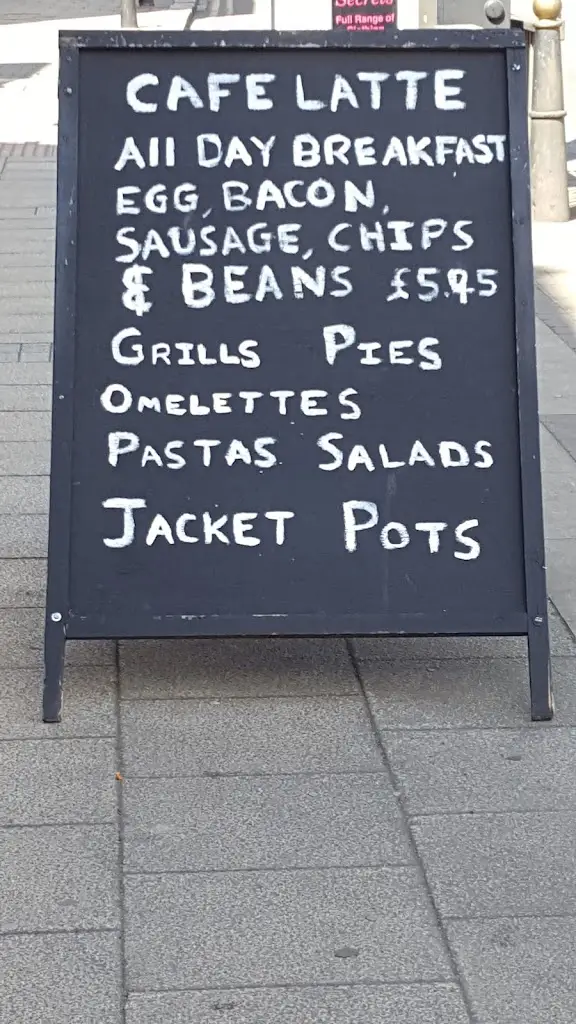 Secrets
Full Range of
Clothing
CAFE LATTE
All DAY BREAKFAST
EGG, BACON,
SAUSAGE, CHIPS
& BEANS £5.95
GRILLS PIES
OMELETTES
PASTAS SALADS
JACKET POTS